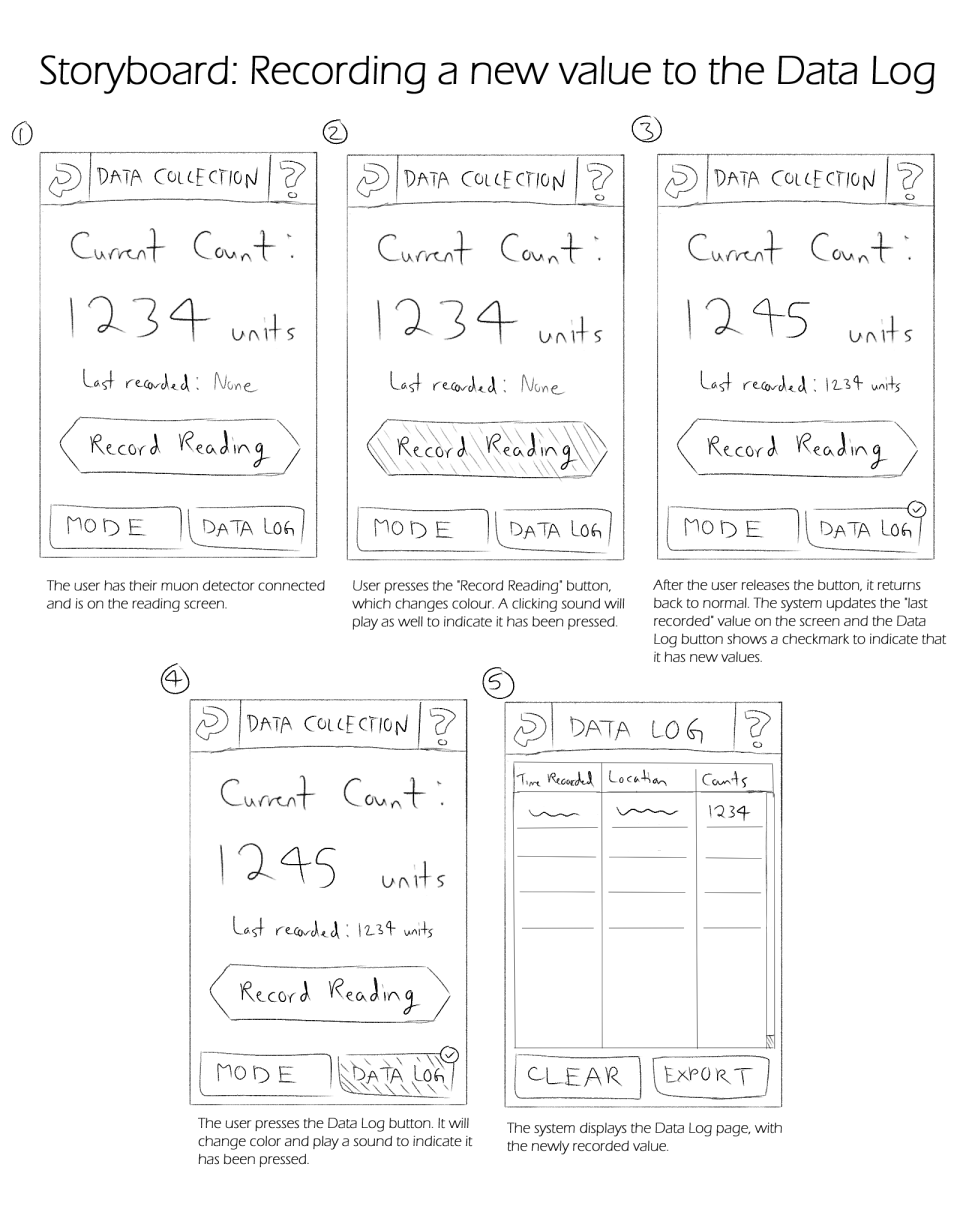 Storyboard: Recording a new value to the Data Log
1
DATA COLLECTION ?
Current Count:
1234 units
Last recorded: None
Record Reading
MODE DATA LOG
The user has their muon detector connected
and is on the reading screen.
2
DATA COLLECTION ?
Current Count:
1234 units
Last recorded: None
Record Reading
MODE DATA LOG
User presses the "Record Reading" button,
which changes colour. A clicking sound will
play as well to indicate it has been pressed.
3
DATA COLLECTION ?
Current Count:
1245 units
Last recorded: 1234 units
Record Reading
MODE DATA LOG
After the user releases the button, it returns
back to normal. The system updates the "last
recorded" value on the screen and the Data
Log button shows a checkmark to indicate that
it has new values.
4
DATA COLLECTION ?
Current Count:
1245 units
Last recorded: 1234 units
Record Reading
MODE DATA LOG
The user presses the Data Log button. It will
change color and play a sound to indicate it
has been pressed.
5
DATA LOG ?
Time Recorded Location Counts
1234
CLEAR EXPORT
The system displays the Data Log page, with
the newly recorded value.